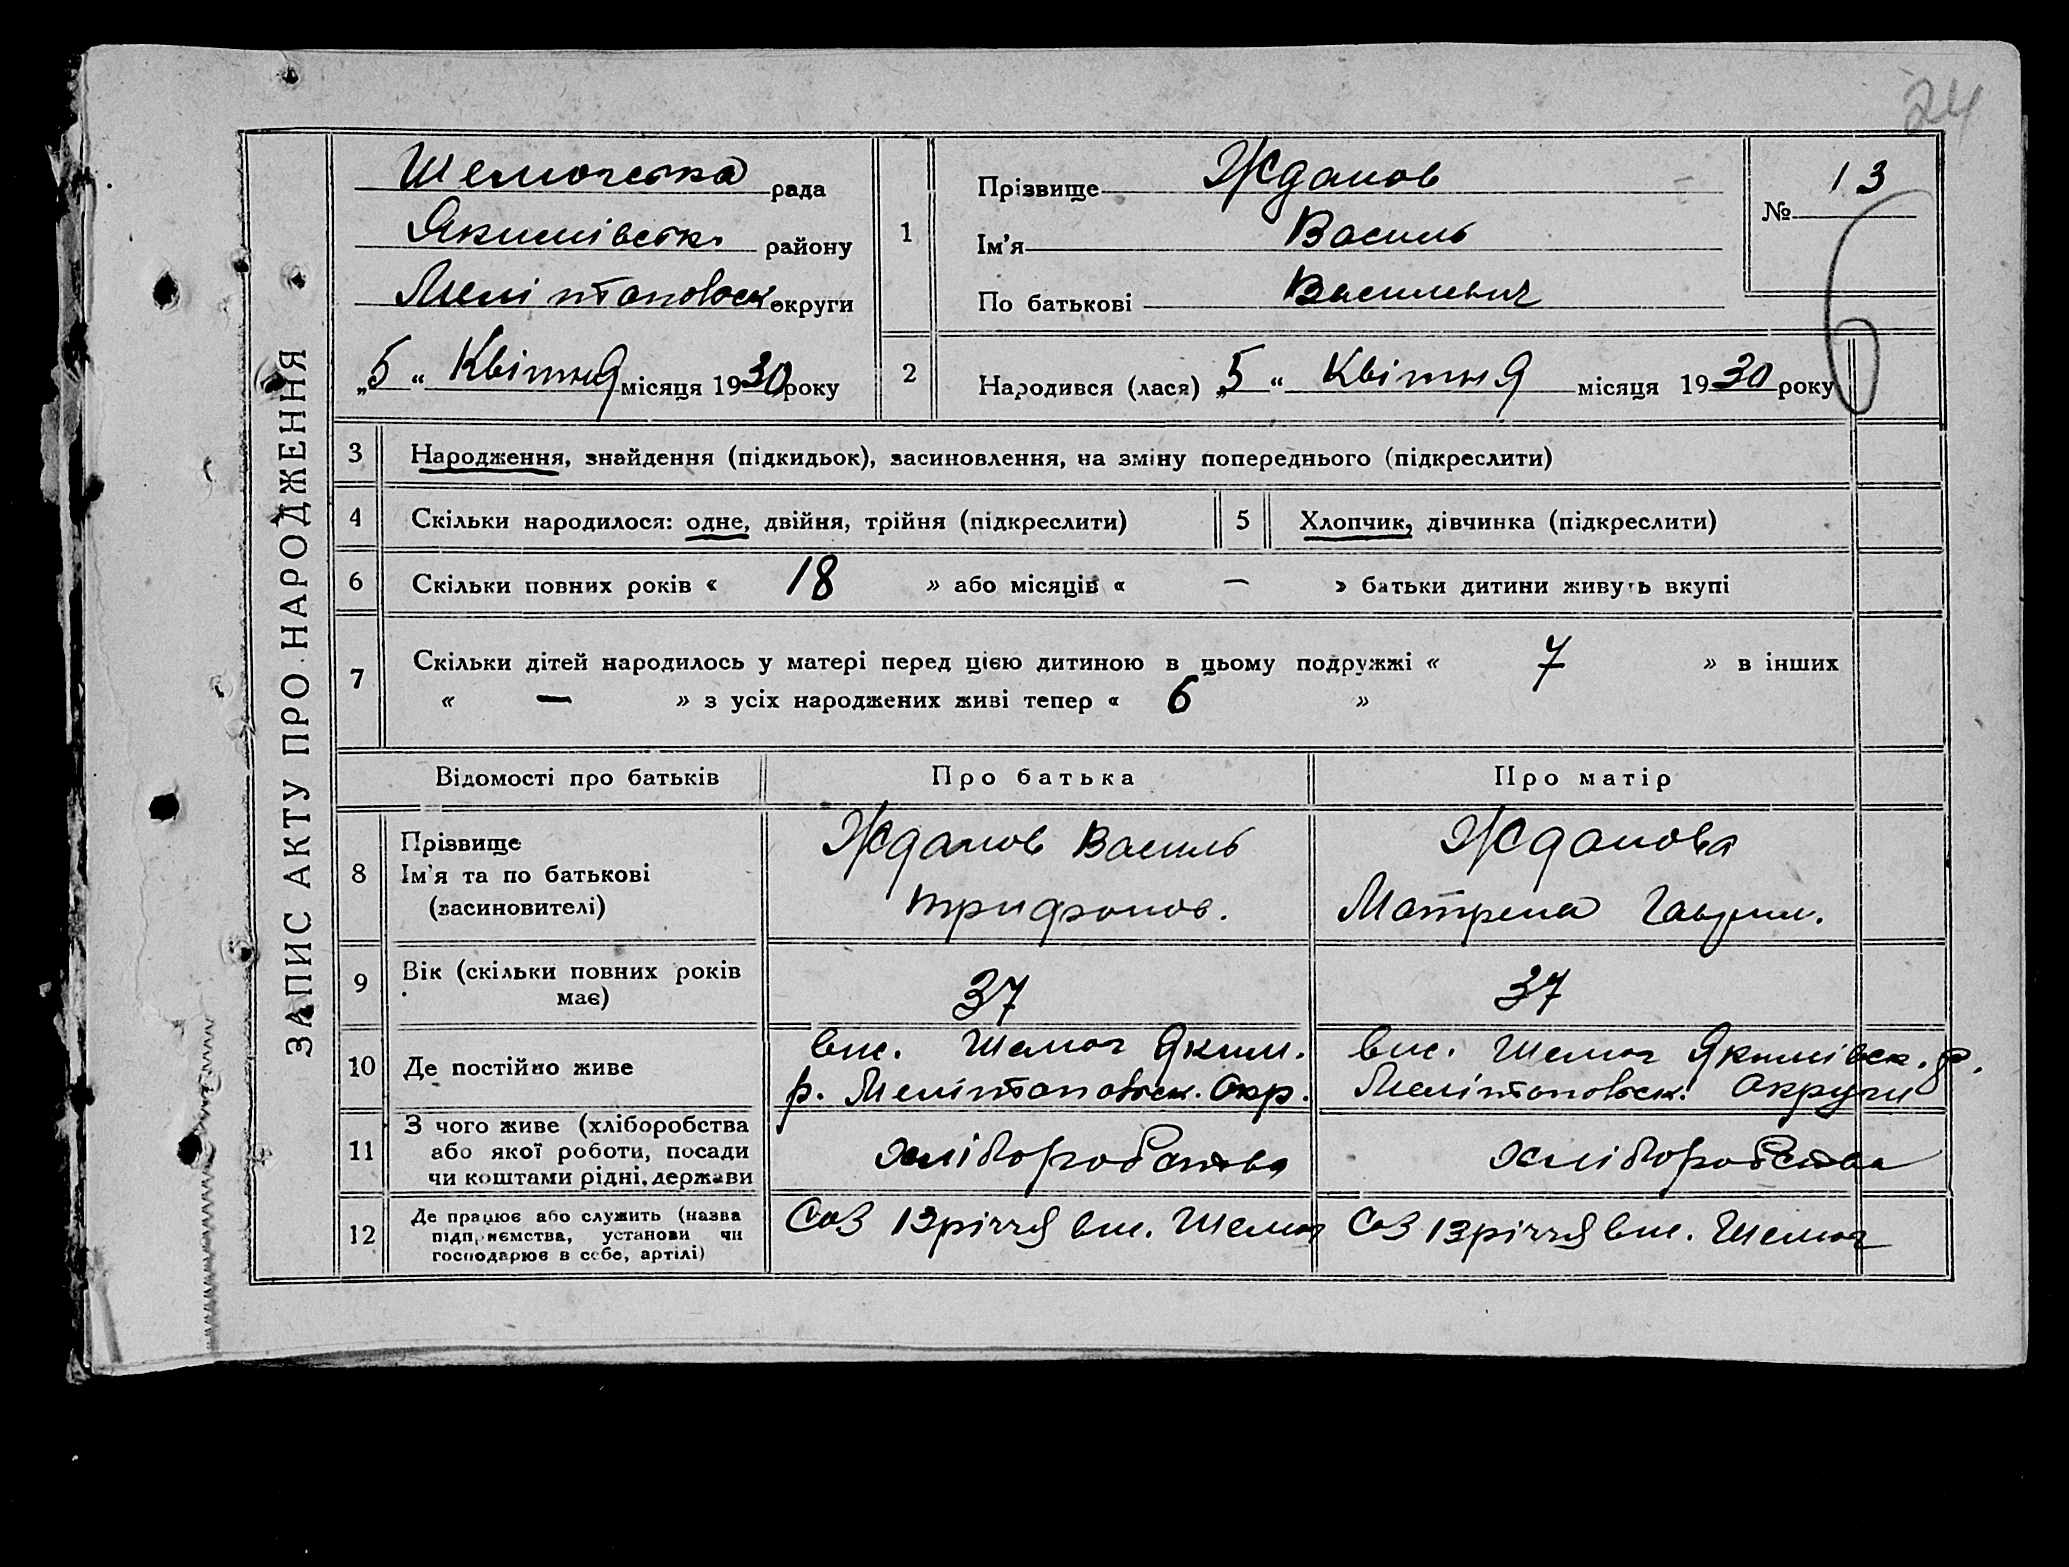 24
ЗАПИС АКТУ ПРО НАРОДЖЕННЯ
Шемогська рада
Якимівськ. району
Мелітоповськ округи
„5 “ Квітня місяця 1930 року
1
Прізвище Жданов
Ім’я Василь
По батькові Васильевич
№ 13
2
Народився (лася) „5 “ Квітня місяця 1930 року
3 Народження, знайдення (підкидьок), засиновлення, на зміну попереднього (підкреслити)
4 Скільки народилося: одне, двійня, трійня (підкреслити)
5 Хлопчик, дівчинка (підкреслити)
6 Скільки повних років « 18 » або місяців « — » батьки дитини живуть вкупі
7 Скільки дітей народилось у матері перед цією дитиною в цьому подружжі « 7 » в інших
« — » з усіх народжених живі тепер « 6 »
Відомості про батьків
Про батька
Про матір
8
Прізвище
Ім’я та по батькові
(засиновителі)
Жданов Василь
Трифонов.
Жданова
Матрена Гаврил.
9
Вік (скільки повних років
має)
37
37
10 Де постійно живе
вис. Шемог Яким.
р. Мелітоповськ. Окр.
вис. Шемог Якимівск. р.
Мелітоповськ. Округи
11
З чого живе (хліборобства
або якої роботи, посади
чи коштами рідні, держави
хліборобства
хліборобства
12
Де працює або служить (назва
підприємства, установи чи
господарює в себе, артілі)
Соз 13річчя вис. Шемог
Соз 13річчя вис. Шемог